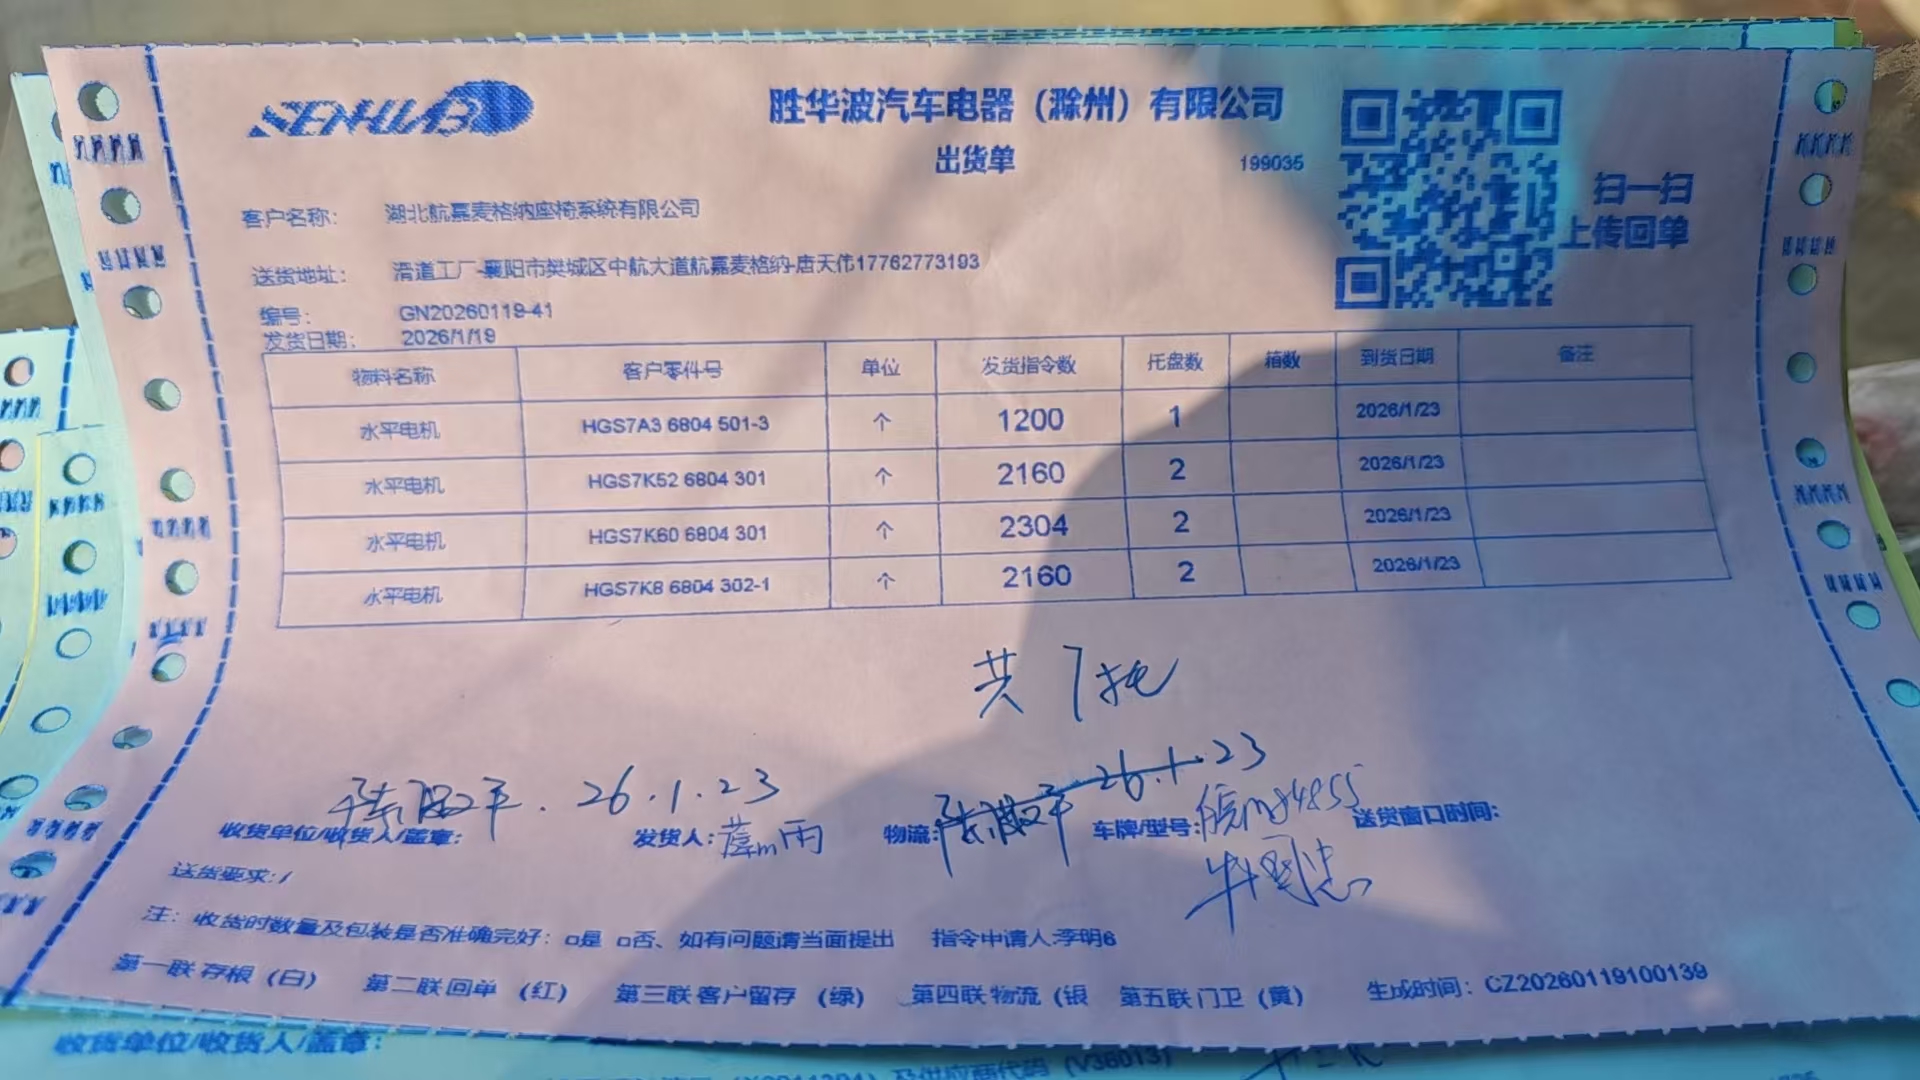 SENHWB
胜华波汽车电器（滁州）有限公司
出货单 199035
扫一扫
上传回单
客户名称： 湖北航嘉麦格纳座椅系统有限公司
送货地址： 滑道工厂-襄阳市樊城区中航大道航嘉麦格纳-唐天伟17762773193
编号： GN20260119-41
发货日期： 2026/1/19
物料名称 客户零件号 单位 发货指令数 托盘数 箱数 到货日期 备注
水平电机 HGS7A3 6804 501-3 个 1200 1 2026/1/23
水平电机 HGS7K52 6804 301 个 2160 2 2026/1/23
水平电机 HGS7K60 6804 301 个 2304 2 2026/1/23
水平电机 HGS7K8 6804 302-1 个 2160 2 2026/1/23
共7托
26.1.23 26.1.23
收货单位/收货人/盖章： 发货人： 物流： 车牌/型号： 送货窗口时间：
送货要求：/
注：收货时数量及包装是否准确完好：□是 □否、如有问题请当面提出 指令申请人:李明6
第一联 存根（白） 第二联 回单 （红） 第三联 客户留存 （绿） 第四联 物流（银 第五联 门卫（黄） 生成时间：CZ20260119100139
收货单位/收货人/盖章：
及供应商代码（V36013）